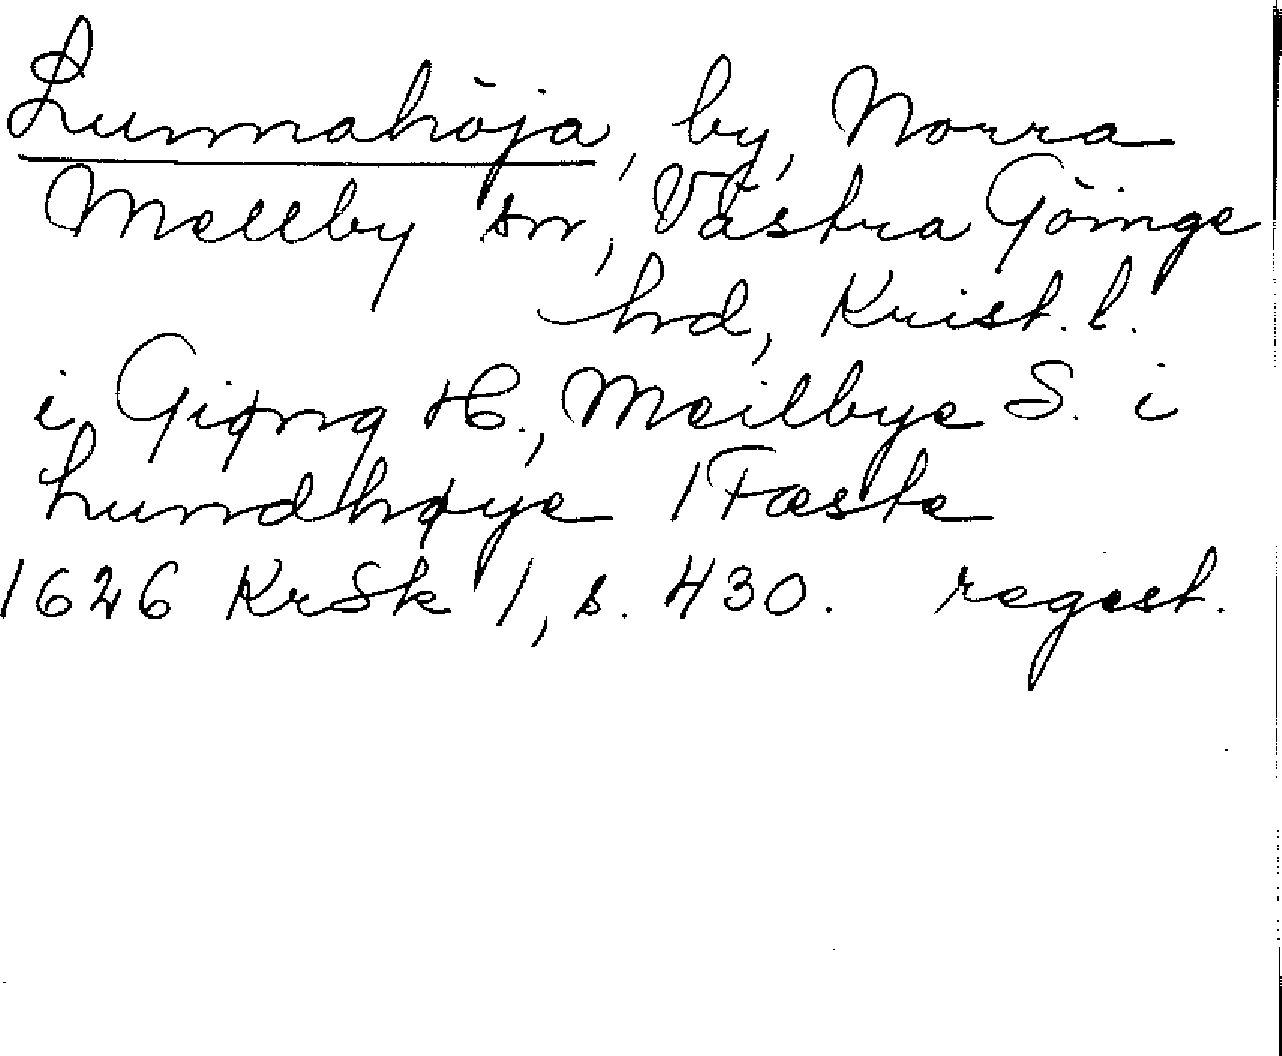 Lunnahöja, by, Norra
Mellby sn, Västra Göinge
hd, Krist. l.
i Giøng H., Meilbye S. i
Lundhøye 1 Fæste
1626 KrSk 1, s. 430. regest.